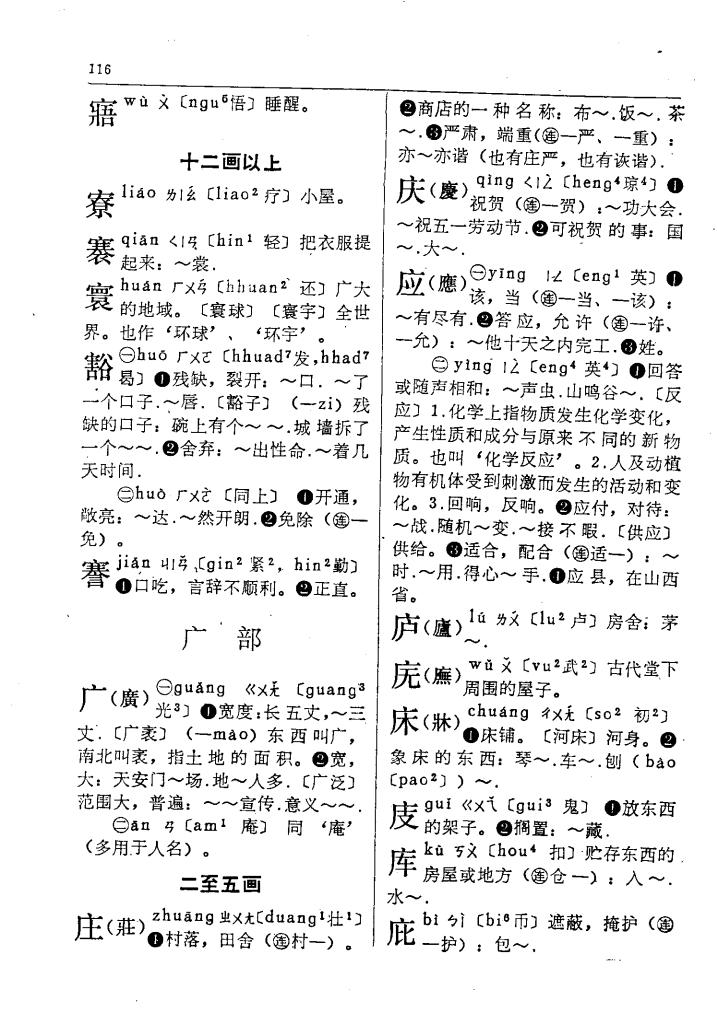 116
寤 wù ㄨˋ〔ngu⁶悟〕睡醒。
十二画以上
寮 liáo ㄌㄧㄠˊ〔liao²疗〕小屋。
褰 qiān ㄑㄧㄢ〔hin¹ 轻〕把衣服提
起来：～裳.
寰 huán ㄏㄨㄢˊ〔hhuan² 还〕广大
的地域。〔寰球〕〔寰宇〕全世
界。也作‘环球’、‘环宇’。
豁 ㊀huō ㄏㄨㄛ〔hhuad⁷发,hhad⁷
曷〕❶残缺，裂开：～口．～了
一个口子.～唇.〔豁子〕（—zi）残
缺的口子：碗上有个～～.城墙拆了
一个～～.❷舍弃：～出性命.～着几
天时间.
㊁huò ㄏㄨㄛˋ〔同上〕❶开通，
敞亮：～达.～然开朗.❷免除（㊣—
免）。
謇 jiǎn ㄐㄧㄢˇ〔gin² 紧²，hin²勤〕
❶口吃，言辞不顺利。❷正直。
广 部
广(廣) ㊀guǎng ㄍㄨㄤˇ〔guang³
光³〕❶宽度:长五丈,～三
丈.〔广袤〕（—mào）东西叫广，
南北叫袤，指土地的面积。❷宽，
大：天安门～场.地～人多.〔广泛〕
范围大，普遍：～～宣传.意义～～.
㊁ān ㄢ〔am¹ 庵〕同‘庵’
（多用于人名）。
二至五画
庄(莊) zhuāng ㄓㄨㄤ〔duang¹壮¹〕
❶村落，田舍（连村—）。
❷商店的一种名称：布～.饭～.茶
～.❸严肃，端重(连—严、—重)：
亦～亦谐（也有庄严，也有诙谐）.
庆(慶) qìng ㄑㄧㄥˋ〔heng⁴琼⁴〕❶
祝贺（连—贺）:～功大会.
～祝五一劳动节.❷可祝贺的事：国
～.大～.
应(應) ㊀yīng ㄧㄥ〔eng¹ 英〕❶
该，当（连—当、—该）：
～有尽有.❷答应，允许（连—许、
—允）：～他十天之内完工.❸姓。
㊁yìng ㄧㄥˋ〔eng⁴ 英⁴〕❶回答
或随声相和：～声虫.山鸣谷～.〔反
应〕1.化学上指物质发生化学变化，
产生性质和成分与原来不同的新物
质。也叫‘化学反应’。2.人及动植
物有机体受到刺激而发生的活动和变
化。3.回响，反响。❷应付，对待：
～战.随机～变.～接不暇.〔供应〕
供给。❸适合，配合（连适—）：～
时.～用.得心～手.❹应县，在山西
省。
庐(廬) lú ㄌㄨˊ〔lu²卢〕房舍：茅
～.
庑(廡) wǔ ㄨˇ〔vu²武²〕古代堂下
周围的屋子。
床(牀) chuáng ㄔㄨㄤˊ〔so² 初²〕
❶床铺。〔河床〕河身。❷
象床的东西：琴～.车～.刨（bào
〔pao²〕）～.
庋 guǐ ㄍㄨㄟˇ〔gui³ 鬼〕❶放东西
的架子。❷搁置：～藏.
库 kù ㄎㄨˋ〔hou⁴ 扣〕贮存东西的
房屋或地方（连仓—）：入～.
水～.
庇 bì ㄅㄧˋ〔bi⁶币〕遮蔽，掩护（连
—护）：包～.